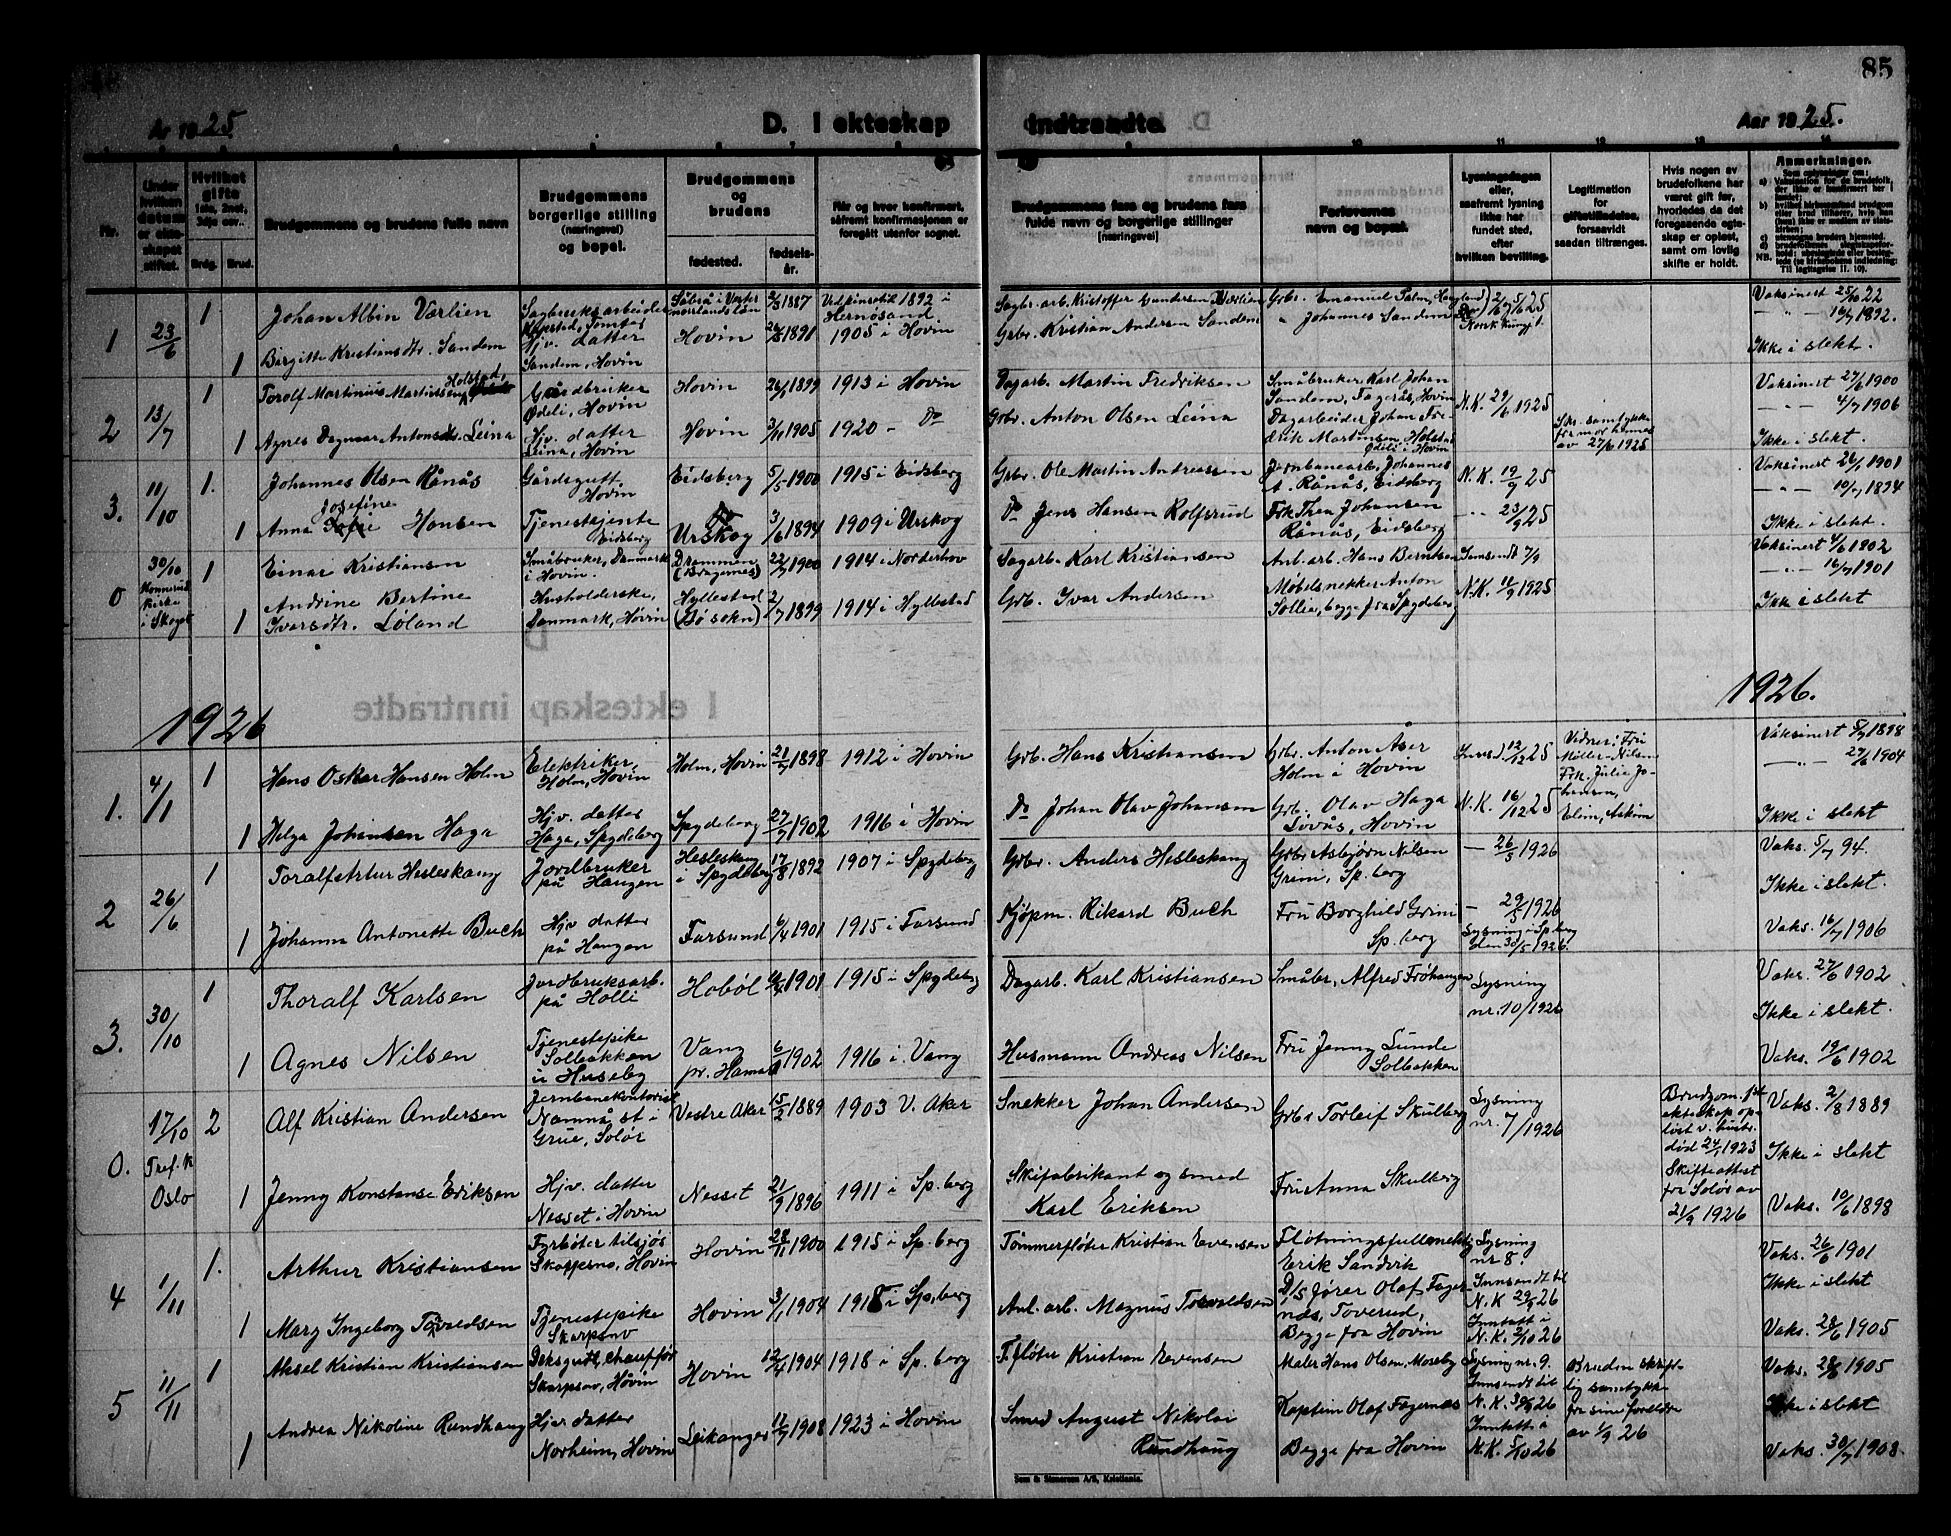 85
År 1925
D. I ekteskap
Indtraadte.
Aar 1925.
Nr.
Under hvilken datum er ekteskapet stiftet.
Hvilket gifte 1ste, 2net, 3dje osv.
Brdg.
Brud.
Brudgommens og brudens fulle navn
Brudgommens borgerlige stilling (næringsvei) og bopel.
Brudgommens og brudens
fødested.
fødselsår.
Når og hvor konfirmert, såfremt konfirmasjonen er foregått utenfor sognet.
Brudgommens fars og brudens fars fulde navn og borgerlige stillinger [næringsvei]
Forlovernes navn og bopæl.
Lysningsdagen eller, saafremt lysning ikke har fundet sted, efter hvilken bevilling.
Legitimation for giftetilladelse, forsaavidt saadan tiltrænges.
Hvis nogen av brudefolkene har været gift før, hvorledes da det foregaaende egteskap er opløst, samt om lovlig skifte er holdt.
Anmerkninger.
1
23/6
1
Johan Albin Værlien
Sagbruksarbeider
1887
1892 i Hernösand
Sagbr. arb. Kristoffer Gundersen Værlien
Grbr. Emanuel Palm,
Vaksinert 25/10 22
1
Birgitte Kristiansdtr. Sandem
Hjv. datter
Sandem, Hovin
Hovin
1891
1905 i Hovin
Grbr. Kristian Andersen Sandem
" Johannes Sandem
— " — 16/7 1892.
Ikke i slekt.
2
13/7
1
Torolf Martinius Martinsen Holstad,
Gårdbruker
Ødeli, Hovin
Hovin
26/1 1899
1913 i Hovin
Dagarb. Martin Fredriksen
Småbruker Karl Johan
Sandem, Fagerås, Hovin
N.K. 29/6 1925
Vaksinert 27/6 1900
1
Agnes Dagmar Antonsdtr. Leina
Hjv. datter
Leina, Hovin
Hovin
3/11 1905
1920 - Do
Grbr. Anton Olsen Leina
Dagarbeider Johan Fredrik Martinsen Holstad
Ødeli i Hovin
Skr. samtykke
fra mor hennes
av 27/6 1925
— " — 4/7 1906
Ikke i slekt.
3.
11/10
1.
Johannes Olsen Rånås
Gårdsgutt
Hovin
Eidsberg
5/5 1900
1915 i Eidsberg
Grbr. Ole Martin Andreassen
Jernbanearb. Johannes
A. Rånås, Eidsberg
N.K. 19/9 25
Vaksinert 26/6 1901
1
Anna Josefine Hansen
Tjenestejente
Eidsberg
Urskog
3/6 1894
1909 i Urskog
Do Jens Hansen Rolfsrud
Frk Thea Johansen
Rånås, Eidsberg
- " - 23/9 25
— " — 10/7 1894
Ikke i slekt.
0
30/10
Konnerud
Kirke
i Skoger
1
Einar Kristiansen
Småbruker, Danmark
i Hovin.
Drammen
(Bragernes)
22/7 1900
1914 i Norderhov
Sagarb. Karl Kristiansen
Anl. arb. Hans Berntsen
Innsendt 7/9
Vaksinert 4/6 1902
1
Andrine Bertine
Ivarsdtr. Løland
Husholderske,
Danmark, Hovin
Hyllestad
(Bø sokn)
2/7 1899
1914 i Hyllestad
Grb. Ivar Andersen
Møbelsnekker Anton
Sollie, begge fra Spydeberg
N.K. 11/9 1925
— " — 16/7 1901
Ikke i slekt
1926
1926.
1.
4/1
1
Hans Oskar Hansen Holm
Elektriker,
Holm, Hovin
Holm, Hovin
21/7 1898
1912 i Hovin
Grb. Hans Kristiansen
Grbr. Anton Aser
Holm i Hovin
Innsd. 12/12 25
Vidner: Fru
Møller-Nilsen
Frk. Julie Johansen,
Elim, Askim
Vaksinert 5/7 1898
— " — 27/6 1904
1
Helga Johansen Haga
Hjv. datter
Haga, Spydeberg
Spydeberg
27/7 1902
1916 i Hovin
Do Johan Olav Johansen
Grb. Olav Haga
Løvås, Hovin
N.K. 16/12 25
Ikke i slekt
2
26/6
1
Toralf Artur Hesleskaug
Jordbruker
på Haugen
Hesleskaug
i Spydeberg
17/8 1892
1907 i Spydeberg
Grbr. Anders Hesleskaug
Grbr Asbjørn Nilsen
Grini, Sp.berg
— 26/5 1926
Vaks. 5/7 94.
Ikke i slekt.
1
Johanne Antonette Buch
Hjv datter
på Haugen
Farsund
6/4 1901
1915 i Farsund
Kjøpm. Rikard Buch
Fru Borghild Grini
Sp.berg
— 29/5 1926
Lysning i Sp.berg
den 30/5 1926.
Vaks. 16/7 1906
3.
30/10
1
Thoralf Karlsen
Jordbruksarb.
på Holli
Hobøl
1901
1915 i Spydeberg
Dagarb. Karl Kristiansen
Småbr. Alfred Frøhaugen
Lysning
nr. 10/1926
Vaks. 27/6 1902
Ikke i slekt.
1
Agnes Nilsen
Tjenestepike
Solbakken
u Huseby
Vang
pr. Hamar
1902
1916 i Vang
Husmann Andreas Nilsen
Fru Jenny Lunde
Solbakken
Vaks. 19/6 1902
0.
17/10
Tref. k
Oslo
2
Alf Kristian Andersen
Jernbanekontorist
Namnå st i
Grue, Solør
Vestre Aker
15/2 1889
1903 V. Aker
Snekker Johan Andersen
Grbr Torleif Skulberg
Lysning
nr. 7/1926
Brudgom. 1ste
ekteskap opløst v. hustr.
død 24/1 1923
Skifteattest
fra Solør av
21/9 1926
Vaks. 2/8 1889
Ikke i slekt
1
Jenny Konstanse Eriksen
Hjv. datter
Nesset i Hovin
Nesset
21/9 1896
1911 i Sp.berg
Skifabrikant og smed
Karl Eriksen
Fru Anna Skulberg
Vaks. 10/6 1898
4
1/11
1.
Arthur Kristiansen
Fyrbøter tilsjøs
Skarpsno, Hovin
Hovin
28/11 1900
1915 i Sp.berg
Tømmerfløter Kristian Evensen
Fløtningsfullmektig
Erik Sandvik
Lysning
nr 8.
Innsendt til
N.K 29/9 26
Inntatt i
N.K. 2/10 26
Vaks. 26/6 1901
Ikke i slekt
1
Mary Ingeborg Torvaldsen
Tjenestepike
Skarpsno
Hovin
3/1 1904
1918 i Sp.berg
Anl. arb. Magnus Torvaldsen
D/S fører Olaf Fagernæs, Toverud,
Begge fra Hovin
Vaks. 28/6 1905
5
11/11
1
Aksel Kristian Kristiansen
Dekksgutt, chauffør
Skarpsno, Hovin
Hovin
1904
1918 i Sp.berg
T.fløter Kristian Evensen
Maler Hans Olsen, Moseby
Lysning nr. 9.
Innsendt til
N.K. 30/9 26
Inntatt i
N.K. 5/10 26
Bruden skriftlig samtykke
fra sine foreldre
av 1/9 26
Vaks. 28/6 1905
Ikke i slekt
1
Andrea Nikoline Rundhaug
Hjv datter
Norheim, Hovin
Leikanger
1908
1923 i Hovin
Smed August Nikolai
Rundhaug
Kaptein Olaf Fagernæs
Begge fra Hovin
Vaks. 30/7 1908.
Sem & Stenersen A/S, Kristiania.